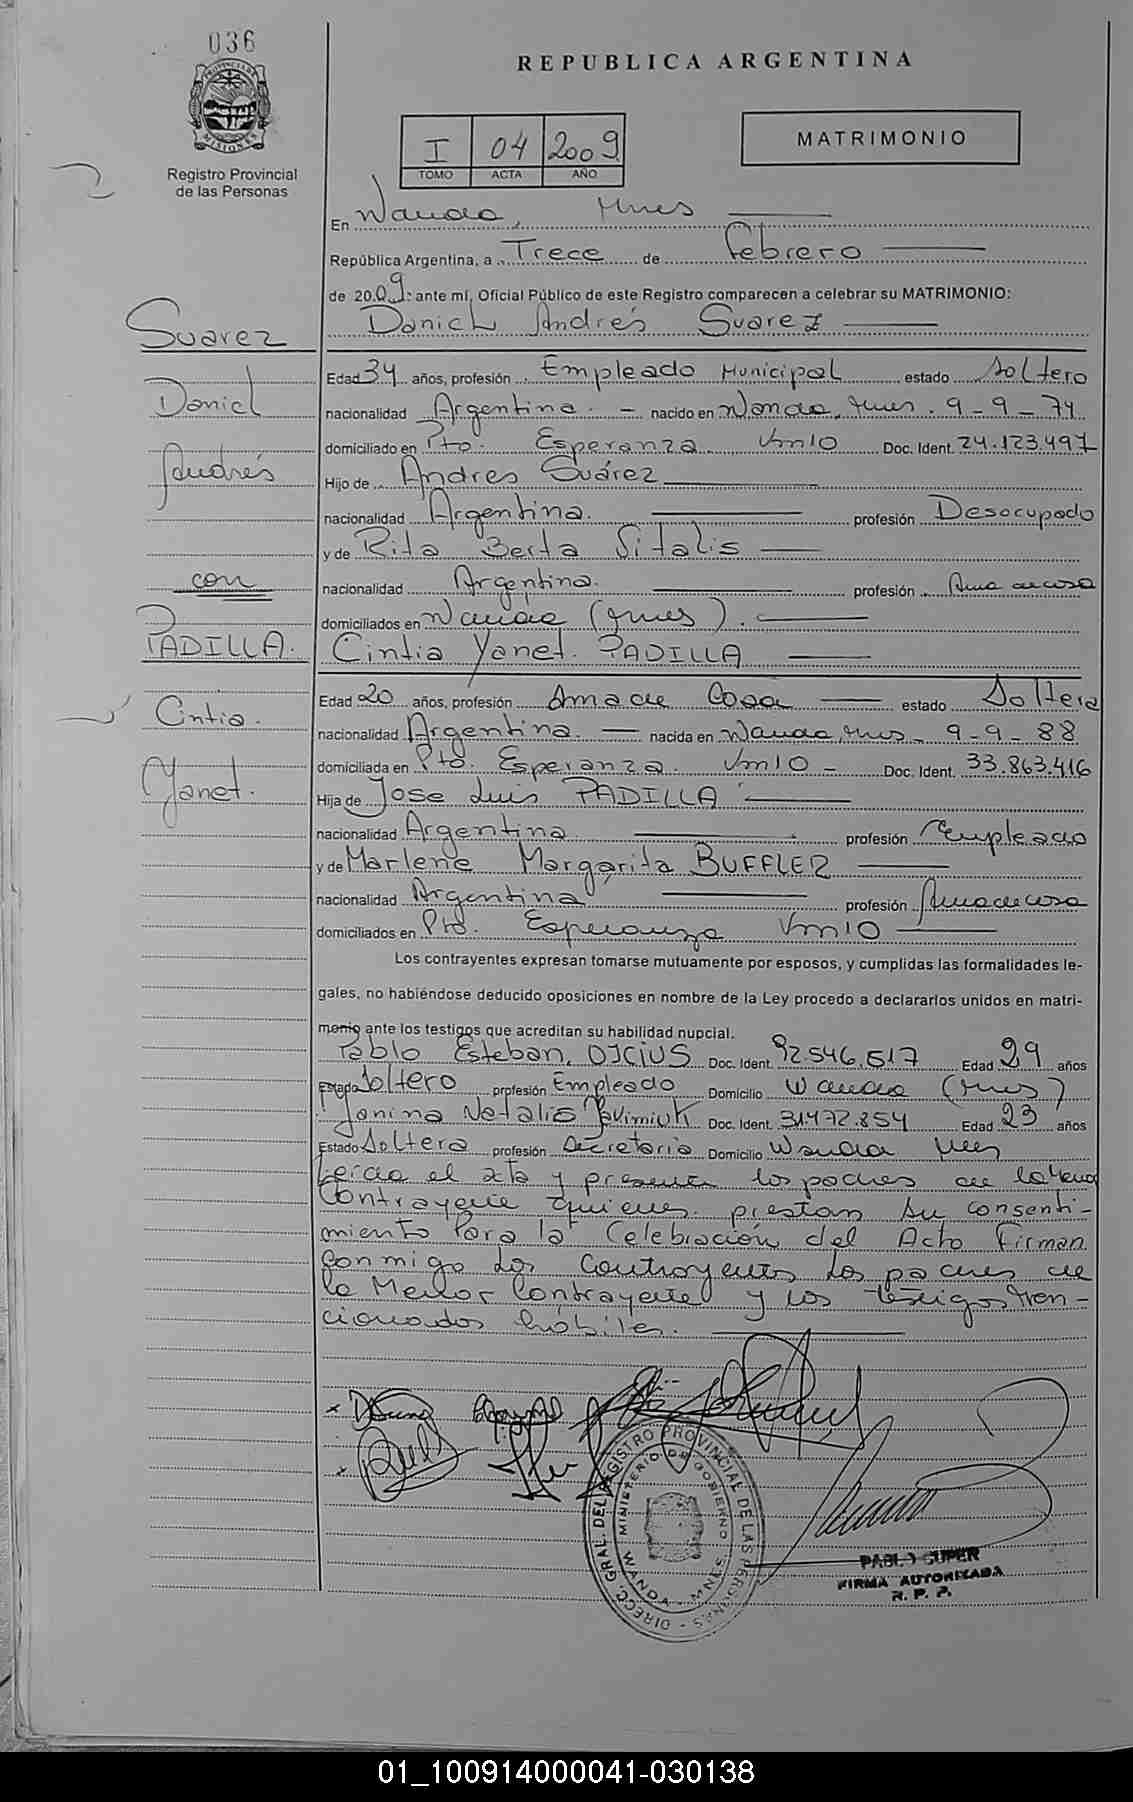 036
REPUBLICA ARGENTINA
PROVINCIA DE MISIONES
Registro Provincial
de las Personas
I 04 2009
TOMO ACTA AÑO
MATRIMONIO
En Wanda, Mnes
República Argentina, a Trece de Febrero
de 2009: ante mí, Oficial Público de este Registro comparecen a celebrar su MATRIMONIO:
Suarez
Daniel Andrés Suarez
Edad 34 años, profesión Empleado Municipal estado Soltero
Daniel
nacionalidad Argentina. - nacido en Wanda, Mnes. 9-9-74
domiciliado en Pto. Esperanza Km10 Doc. Ident. 24.123.497
Andrés
Hijo de Andres Suárez
nacionalidad Argentina. profesión Desocupado
y de Rita Berta Sitalis
con
nacionalidad Argentina. profesión Ama de casa
domiciliados en Wanda (Mnes).
PADILLA.
Cintia Yanet. PADILLA
Edad 20 años, profesión Ama de Casa estado Soltera
Cintia.
nacionalidad Argentina. nacida en Wanda, Mnes - 9-9-88
domiciliada en Pto. Esperanza. Km10 - Doc. Ident. 33.863.416
Yanet.
Hija de Jose Luis PADILLA
nacionalidad Argentina profesión Empleado
y de Marlene Margarita BUFFLER
nacionalidad Argentina profesión Ama de casa
domiciliados en Pto. Esperanza Km10
Los contrayentes expresan tomarse mutuamente por esposos, y cumplidas las formalidades le-
gales, no habiéndose deducido oposiciones en nombre de la Ley procedo a declararlos unidos en matri-
monio ante los testigos que acreditan su habilidad nupcial.
Pablo Esteban, OJCIUS Doc. Ident. 92.546.517 Edad 29 años
Estado Soltero profesión Empleado Domicilio Wanda (Mnes)
Janina Natalia Doc. Ident. 31.472.854 Edad 23 años
Estado Soltera profesión Secretaria Domicilio Wanda Mnes
Leida el acta y presente los padres de la Menor
Contrayente quienes prestan su consenti-
miento Para la Celebración del Acto Firman
conmigo los Contrayentes los padres de
la Menor Contrayente y los testigos men-
cionados hábiles.
DIRECC. GRAL. DEL REGISTRO PROVINCIAL DE LAS PERSONAS
MINISTERIO DE GOBIERNO
WANDA - MNES.
PABLO CUPER
FIRMA AUTORIZADA
R. P. P.
01_100914000041-030138